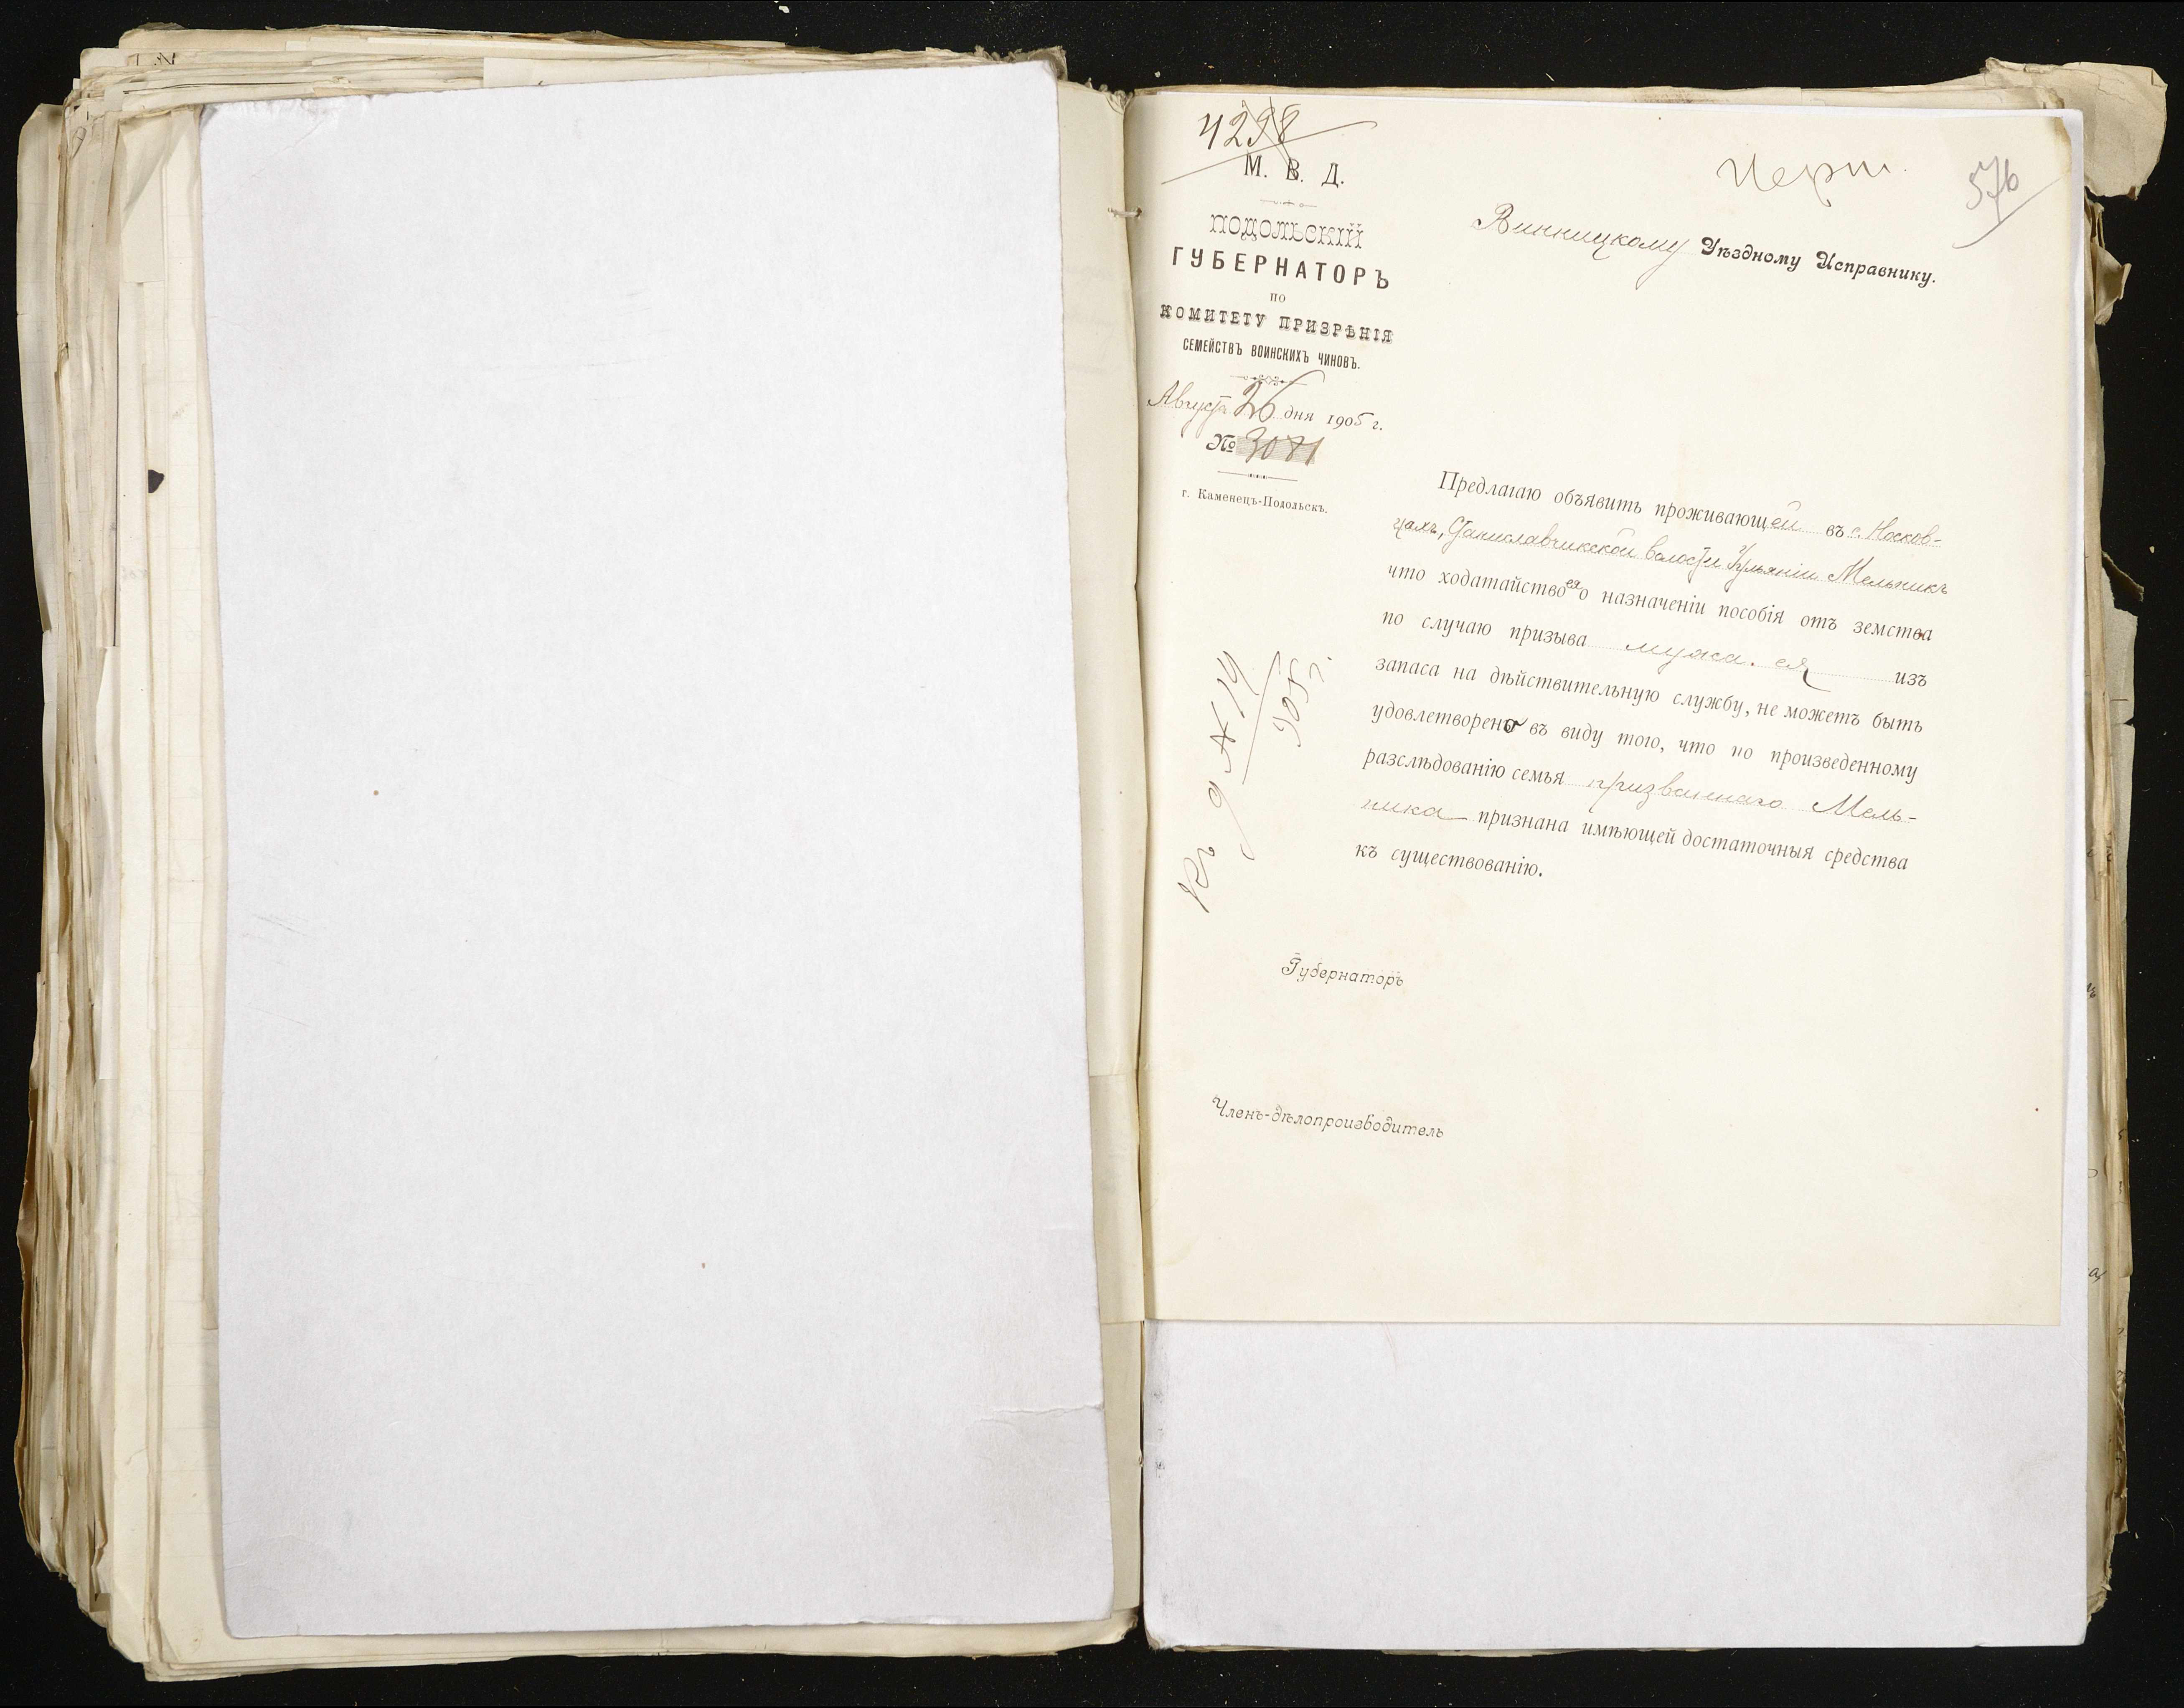 4298
М. В. Д.
ПОДОЛЬСКІЙ
ГУБЕРНАТОРЪ
ПО
КОМИТЕТУ ПРИЗРѢНІЯ
СЕМЕЙСТВЪ ВОИНСКИХЪ ЧИНОВЪ.
Августа 26 дня 1905 г.
№ 3081
г. Каменецъ-Подольскъ.
576
Винницкому Уѣздному Исправнику.
Предлагаю объявить проживающей въ с. Носков-
цахъ, Станиславчикской волости Ульяніи Мельникъ
что ходатайство ея о назначеніи пособія отъ земства
по случаю призыва мужа ея изъ
запаса на дѣйствительную службу, не можетъ быть
удовлетворено въ виду того, что по произведенному
разслѣдованію семья призваннаго Мель-
ника признана имѣющей достаточныя средства
къ существованію.
Къ д № 14
905 г.
Губернаторъ
Членъ-дѣлопроизводитель